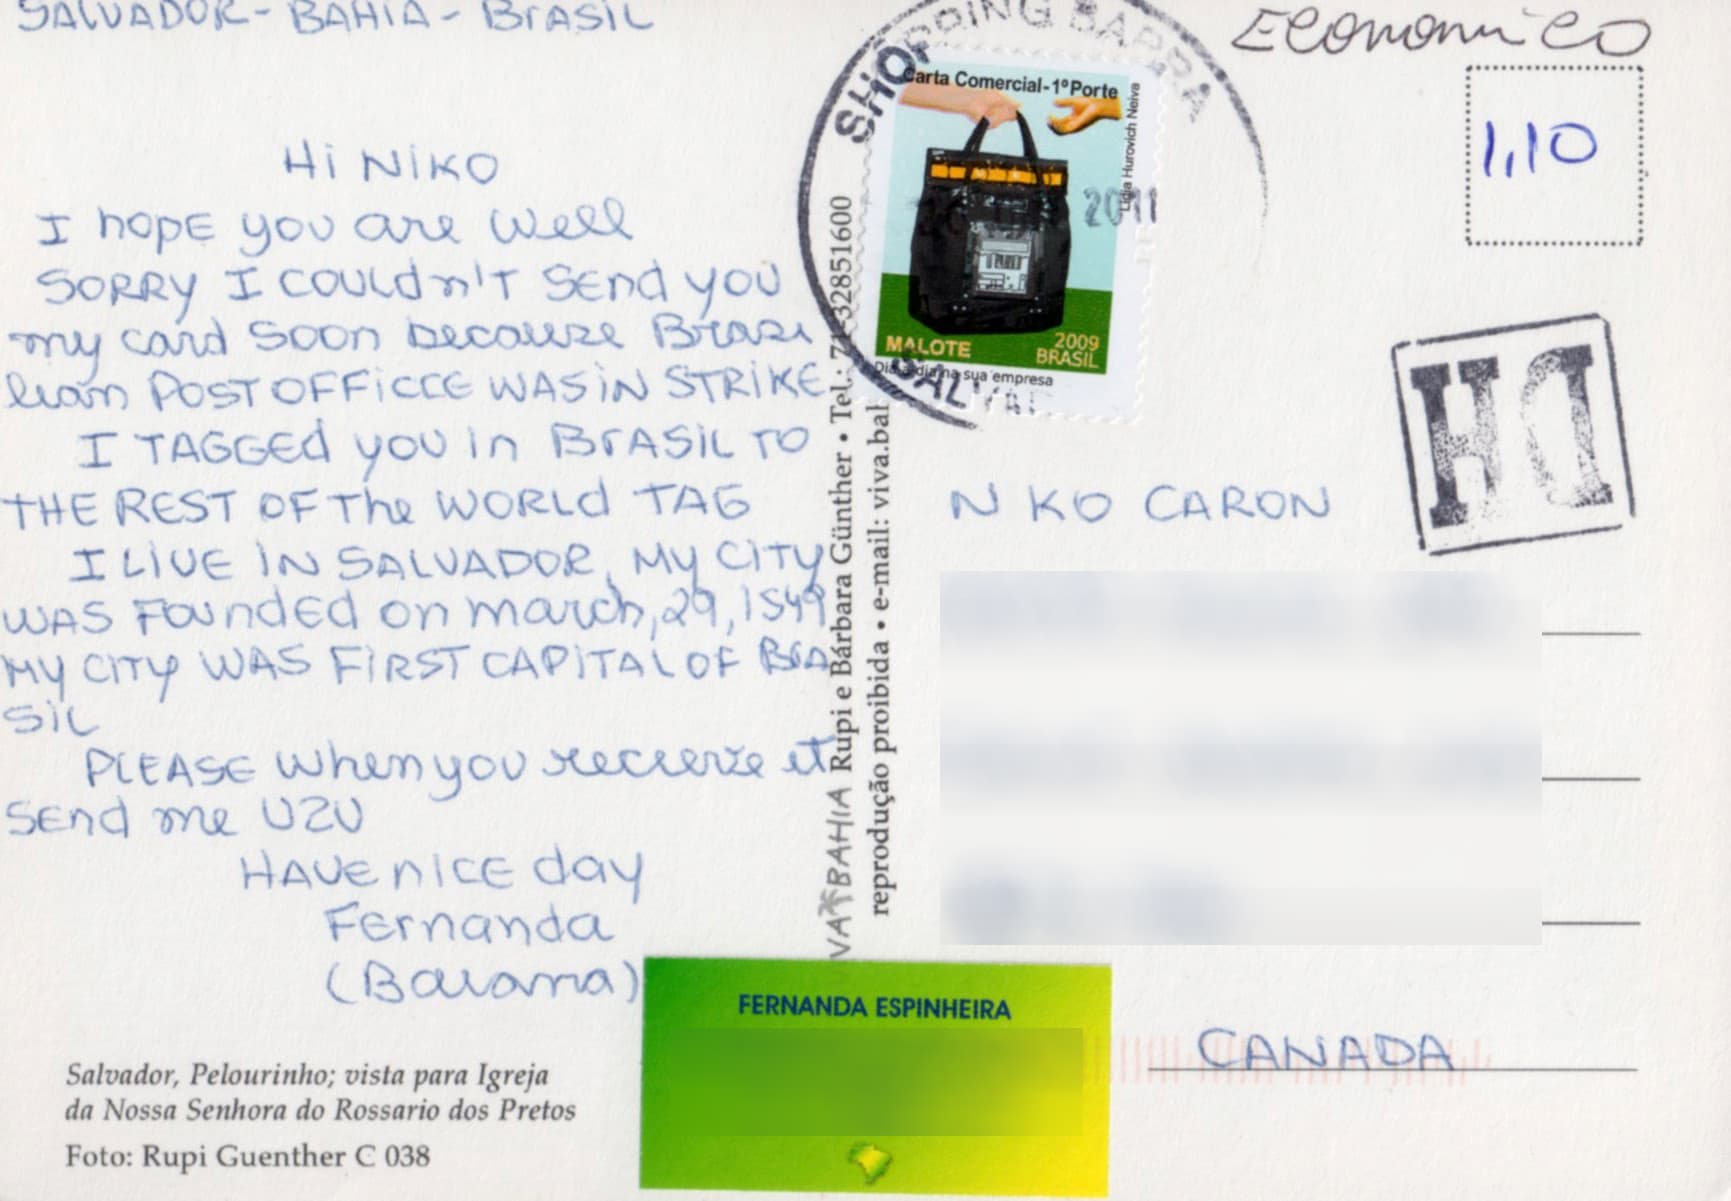 SALVADOR - BAHIA - BrASiL
Hi NiKO
I hope you are well
SORRY I COULdn'T Send you
my card soon because Brazi
lian POST OFFiCCE WAS iN STRIKE.
I TAGGEd you in BrASiL TO
THE REST OF The WORLd TAG
I LiVE iN SALVADOR, MY CITY
WAS Founded on march, 29, 1549
MY CITY WAS FiRST CAPITAL OF BrA
SiL
PLEASE when you receeive it
Send me U2U
HAVE nice day
Fernanda
(Baiana)
Salvador, Pelourinho; vista para Igreja
da Nossa Senhora do Rossario dos Pretos
Foto: Rupi Guenther C 038
VA BAHIA Rupi e Bárbara Günther • Tel.: 71-32851600
reprodução proibida • e-mail: viva.bah
SHOPPING BARRA
2011
SALVAD
Carta Comercial-1º Porte
Lidia Hurovich Neiva
MALOTE
2009
BRASIL
Dia a dia na sua empresa
Economico
1,10
HD
NiKO CARON
CANADA
FERNANDA ESPINHEIRA